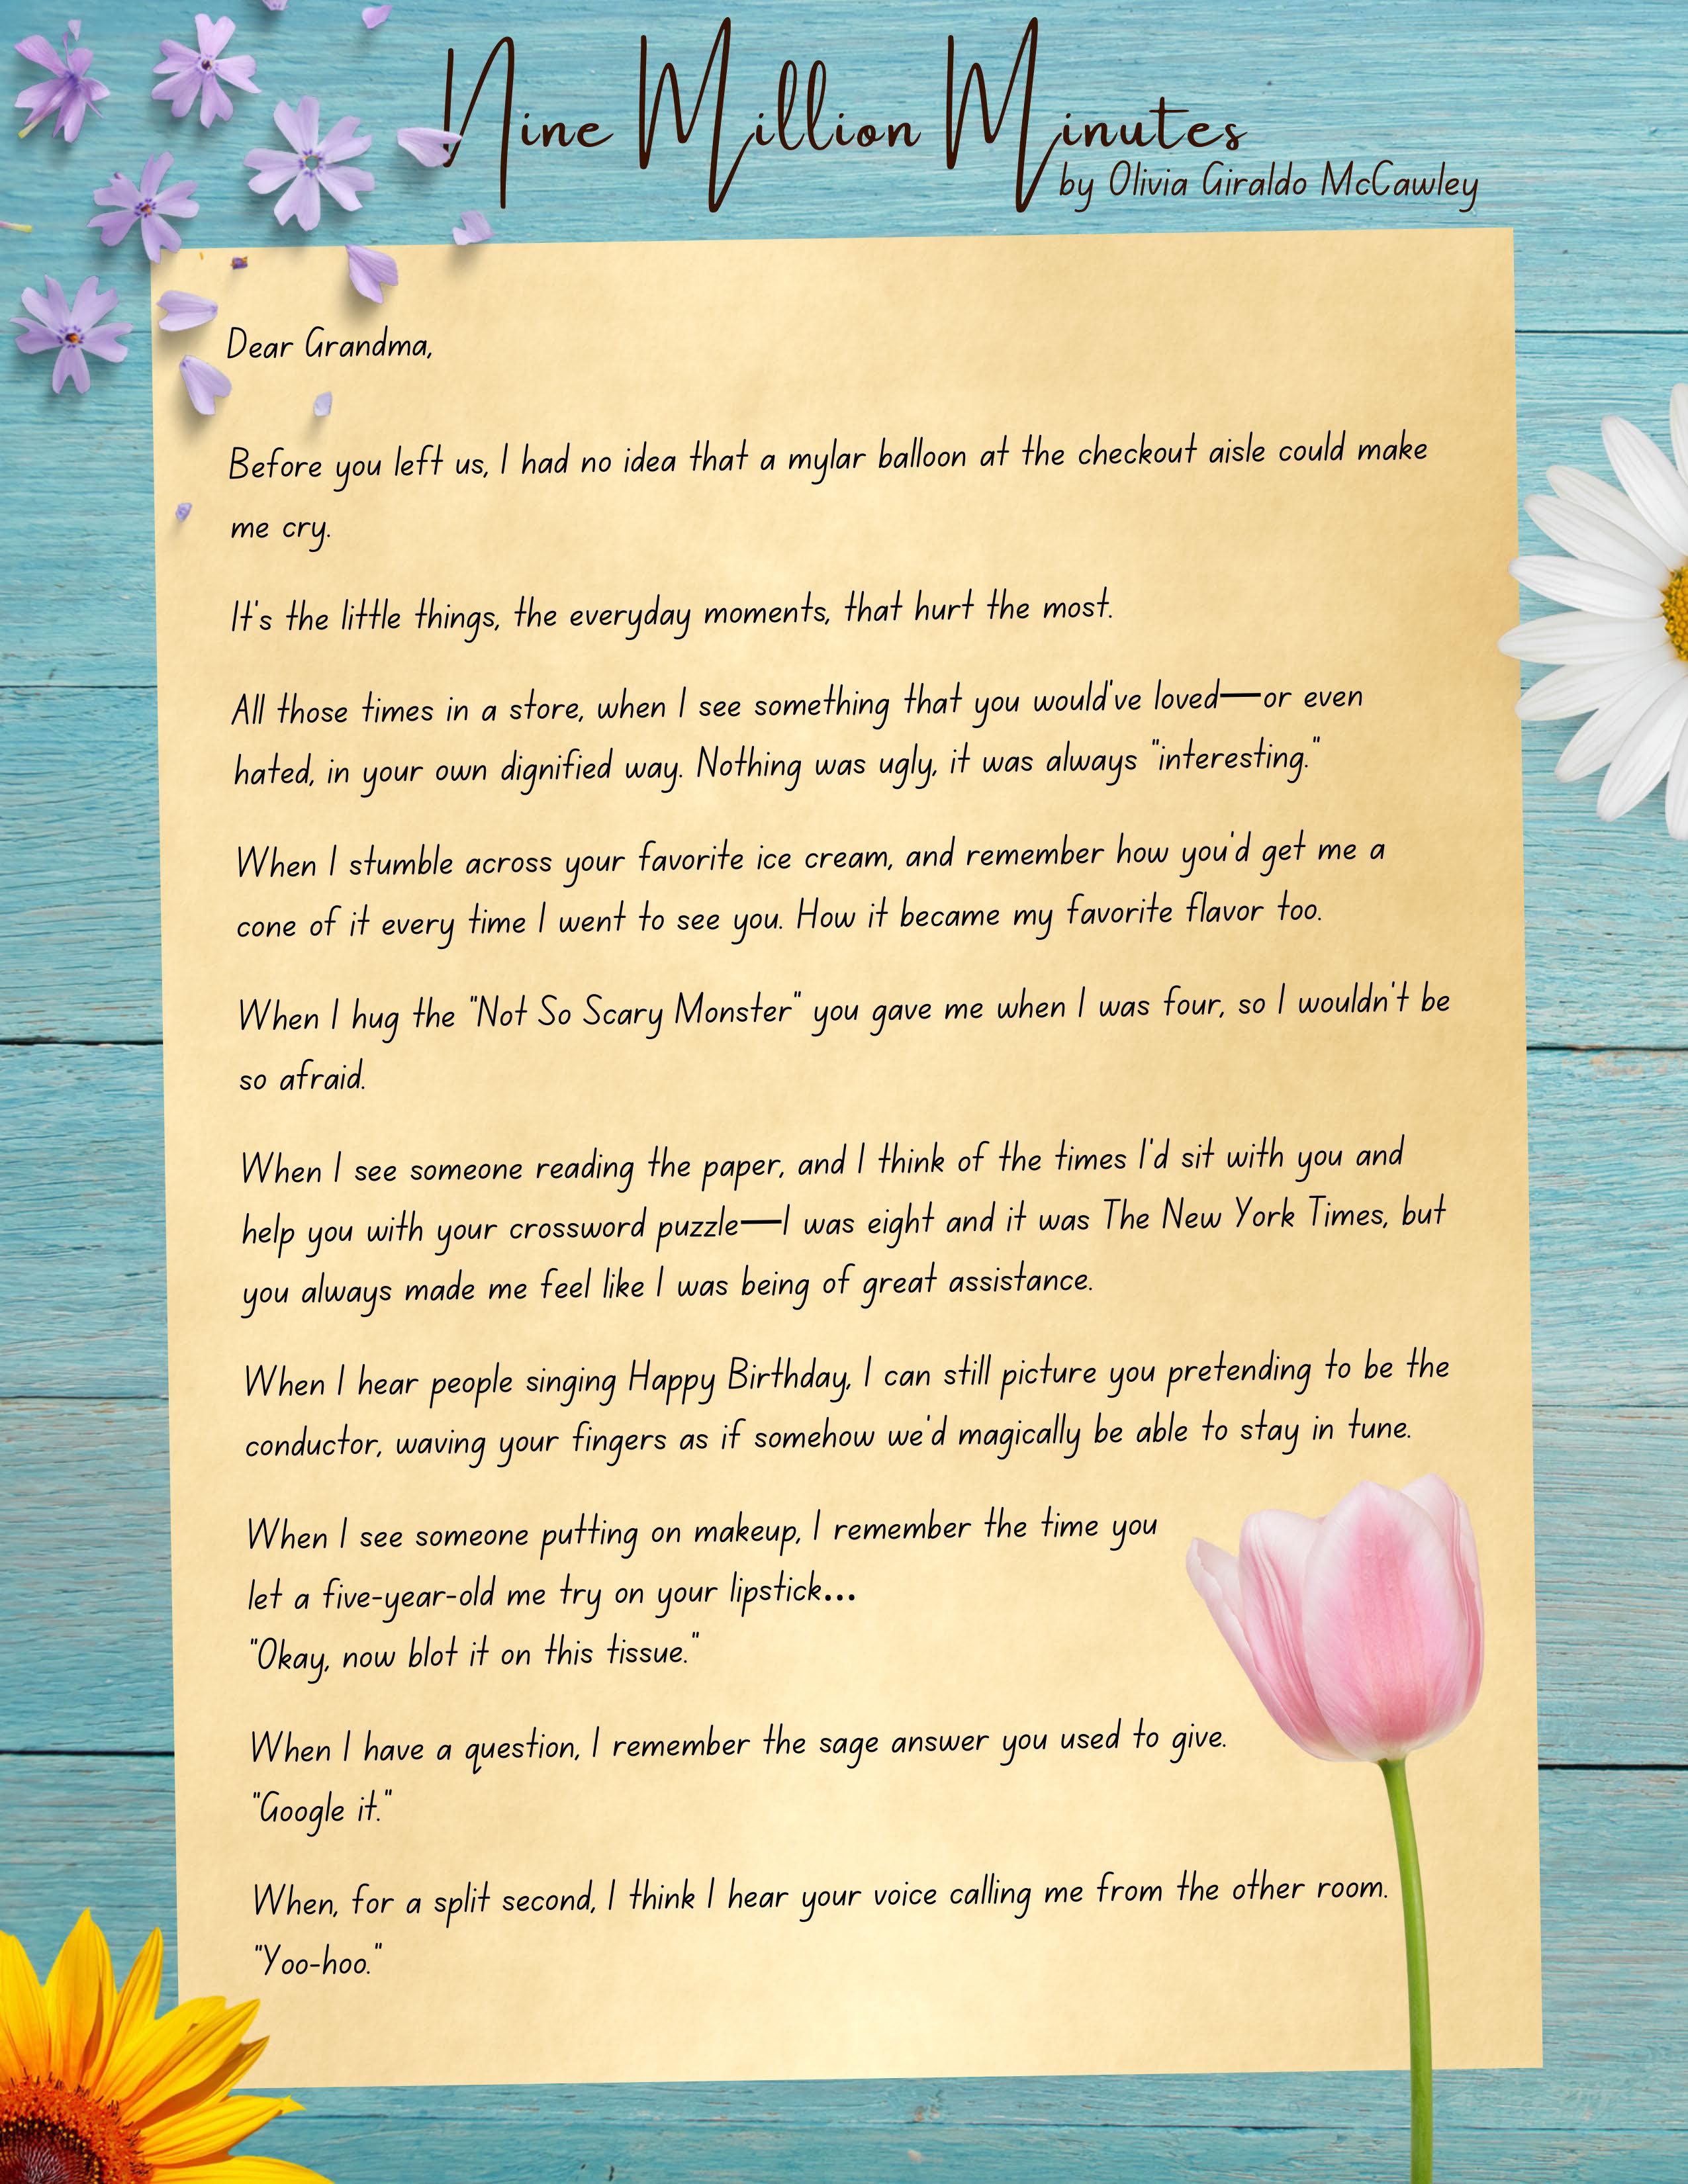 Nine Million Minutes
by Olivia Giraldo McCawley
Dear Grandma,
Before you left us, I had no idea that a mylar balloon at the checkout aisle could make
me cry.
It's the little things, the everyday moments, that hurt the most.
All those times in a store, when I see something that you would've loved—or even
hated, in your own dignified way. Nothing was ugly, it was always "interesting."
When I stumble across your favorite ice cream, and remember how you'd get me a
cone of it every time I went to see you. How it became my favorite flavor too.
When I hug the "Not So Scary Monster" you gave me when I was four, so I wouldn't be
so afraid.
When I see someone reading the paper, and I think of the times I'd sit with you and
help you with your crossword puzzle—I was eight and it was The New York Times, but
you always made me feel like I was being of great assistance.
When I hear people singing Happy Birthday, I can still picture you pretending to be the
conductor, waving your fingers as if somehow we'd magically be able to stay in tune.
When I see someone putting on makeup, I remember the time you
let a five-year-old me try on your lipstick...
"Okay, now blot it on this tissue."
When I have a question, I remember the sage answer you used to give.
"Google it."
When, for a split second, I think I hear your voice calling me from the other room.
"Yoo-hoo."